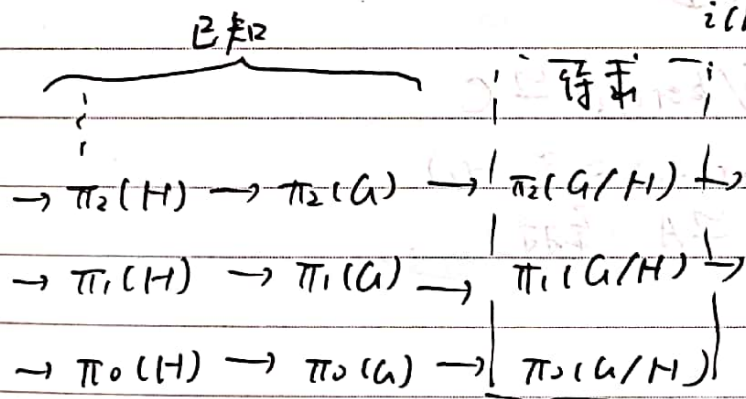 已知
i(
待求
→ π₂(H) → π₂(G) → π₂(G/H) →
→ π₁(H) → π₁(G) → π₁(G/H) →
→ π₀(H) → π₀(G) → π₀(G/H)